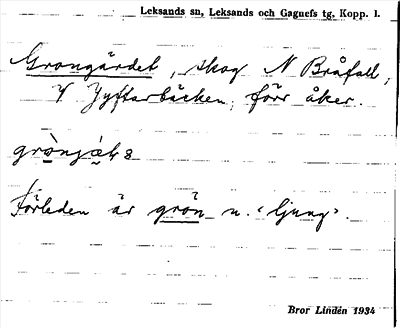 Leksands sn, Leksands och Gagnefs tg, Kopp. l.
Grongärdet, skog N Bråfall,
V Jyftarbäcken, förr åker.
Förleden är grön n. 'ljung'.
Bror Lindén 1934